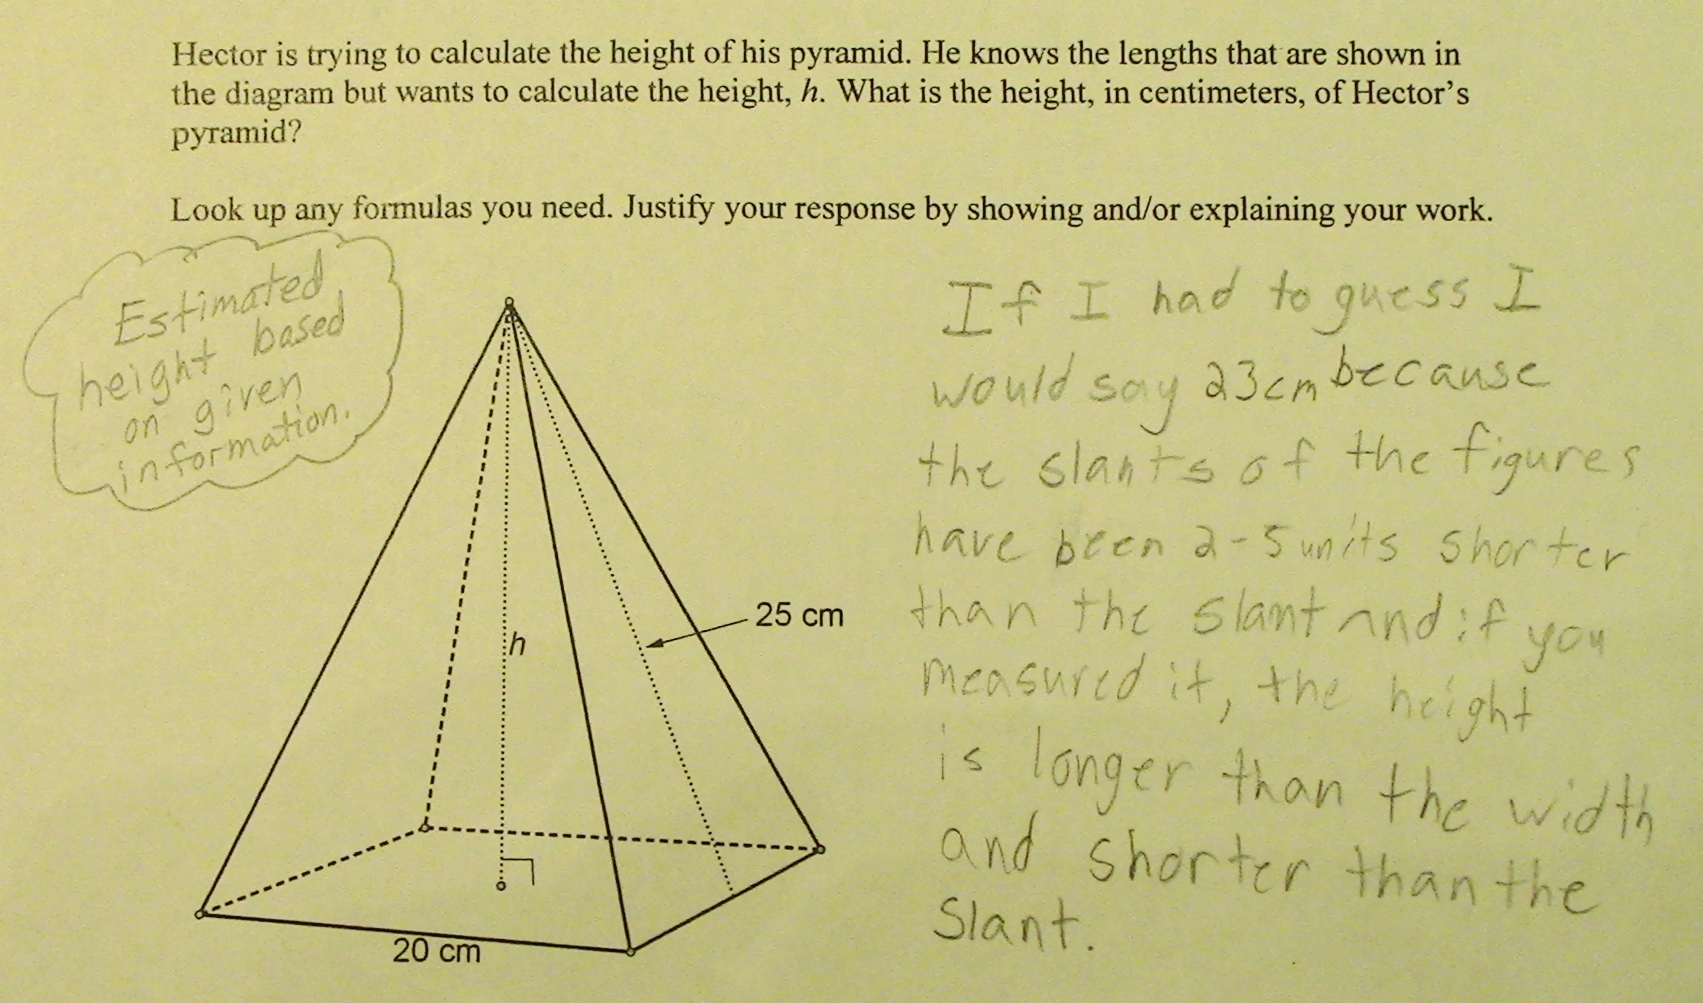 Hector is trying to calculate the height of his pyramid. He knows the lengths that are shown in
the diagram but wants to calculate the height, h. What is the height, in centimeters, of Hector’s
pyramid?
Look up any formulas you need. Justify your response by showing and/or explaining your work.
Estimated
height based
on given
information.
h
25 cm
20 cm
If I had to guess I
would say 23cm because
the slants of the figures
have been 2-5 units shorter
than the slant and if you
measured it, the height
is longer than the width
and shorter than the
Slant.